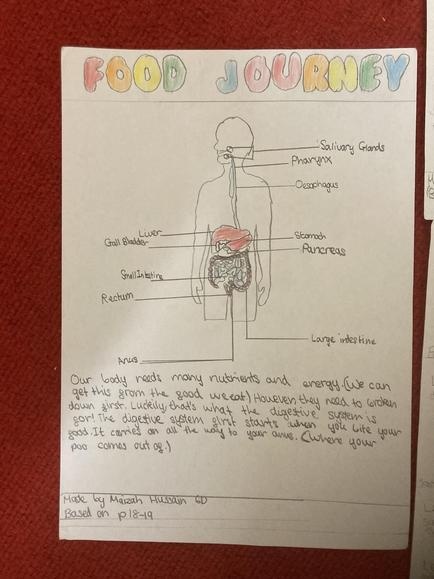 FOOD JOURNEY
Salivary Glands
Pharynx
Oesophagus
Liver
Gall Bladder
Stomach
Pancreas
Small Intestine
Rectum
Large intestine
Anus
Our body needs many nutrients and energy. (We can
get this from the food we eat) However, they need to broken
down first. Luckily, that's what the digestive system is
for! The digestive system first starts when you bite your
food. It carries on all the way to your anus. (Where your
poo comes out of.)
Made by Maizah Hussain 6D
Based on p18-19